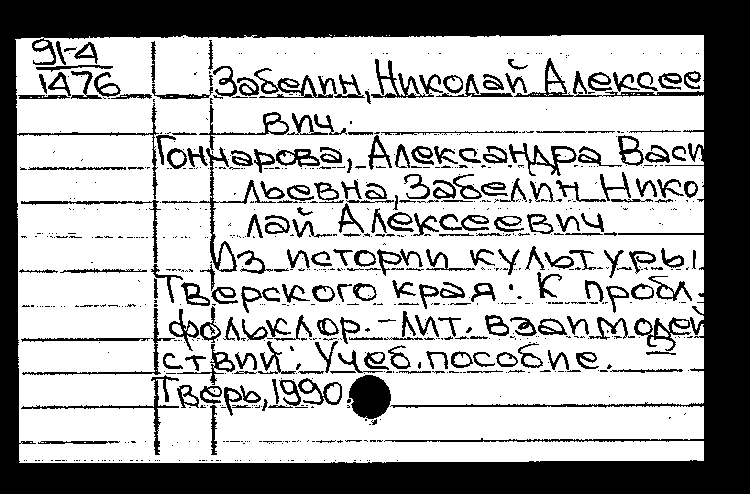 91-4
1476
Забелин, Николай Алексее
вич.
Гончарова, Александра Васи
льевна, Забелин Нико
лай Алексеевич
Из истории культуры
Тверского края: К пробл.
фольклор.-лит. взаимодей
ствий: Учеб. пособие.
Тверь, 1990.